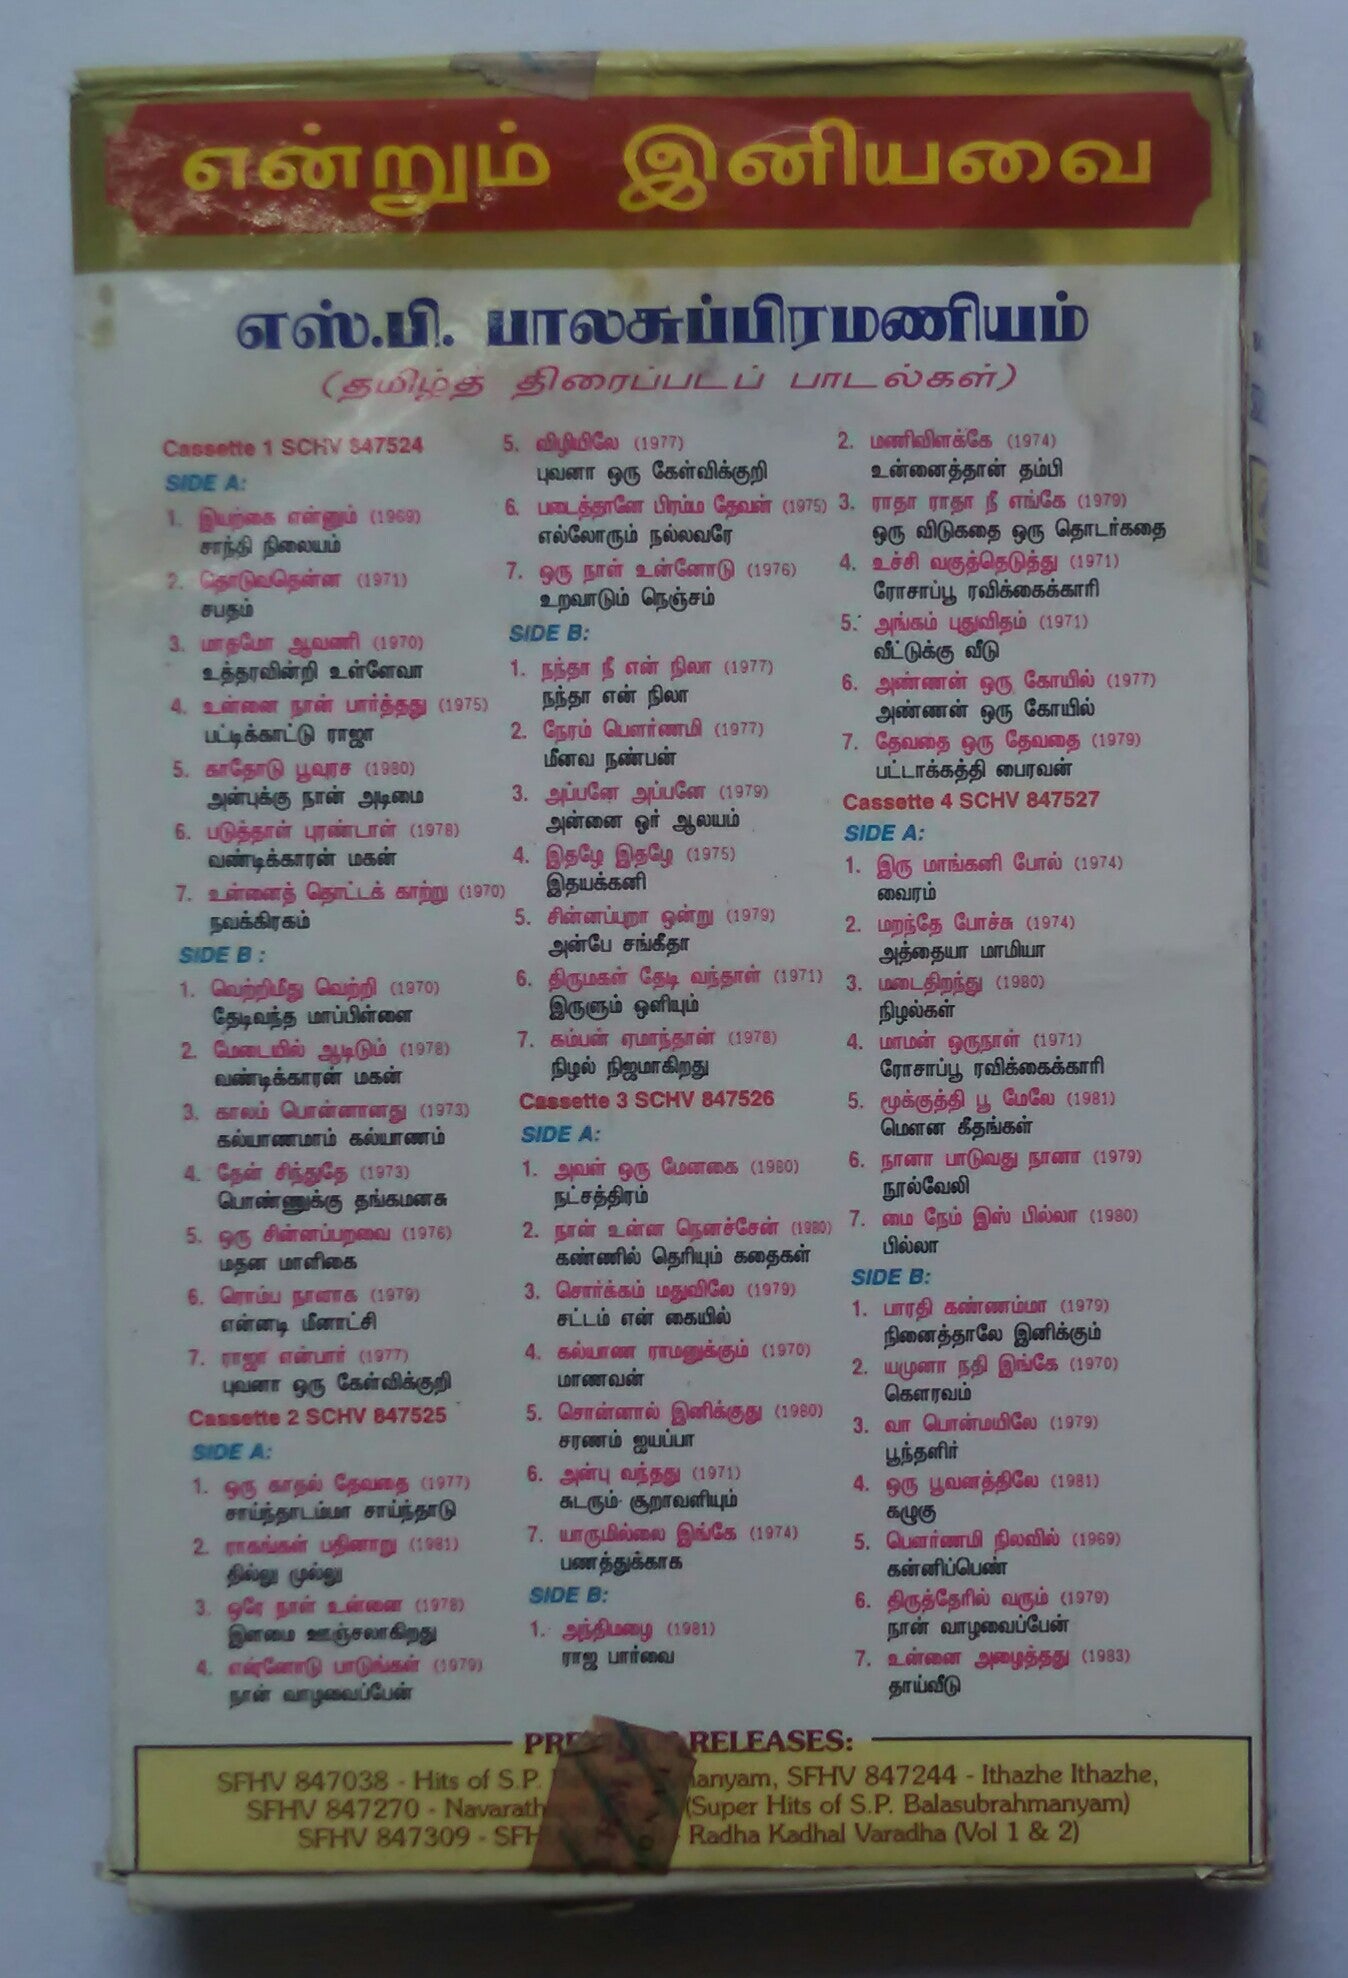 என்றும் இனியவை
எஸ்.பி. பாலசுப்பிரமணியம்
(தமிழ்த் திரைப்படப் பாடல்கள்)
Cassette 1 SCHV 847524
SIDE A:
1. இயற்கை என்னும் (1969)
சாந்தி நிலையம்
2. தொடுவதென்ன (1971)
சபதம்
3. மாதமோ ஆவணி (1970)
உத்தரவின்றி உள்ளேவா
4. உன்னை நான் பார்த்தது (1975)
பட்டிக்காட்டு ராஜா
5. காதோடு பூவுரச (1980)
அன்புக்கு நான் அடிமை
6. படுத்தாள் புரண்டாள் (1978)
வண்டிக்காரன் மகன்
7. உன்னைத் தொட்டக் காற்று (1970)
நவக்கிரகம்
SIDE B :
1. வெற்றிமீது வெற்றி (1970)
தேடிவந்த மாப்பிள்ளை
2. மேடையில் ஆடிடும் (1978)
வண்டிக்காரன் மகன்
3. காலம் பொன்னானது (1973)
கல்யாணமாம் கல்யாணம்
4. தேன் சிந்துதே (1973)
பொண்ணுக்கு தங்கமனசு
5. ஒரு சின்னப்பறவை (1976)
மதன மாளிகை
6. ரொம்ப நாளாக (1979)
என்னடி மீனாட்சி
7. ராஜா என்பார் (1977)
புவனா ஒரு கேள்விக்குறி
Cassette 2 SCHV 847525
SIDE A:
1. ஒரு காதல் தேவதை (1977)
சாய்ந்தாடம்மா சாய்ந்தாடு
2. ராகங்கள் பதினாறு (1981)
தில்லு முல்லு
3. ஒரே நாள் உன்னை (1978)
இளமை ஊஞ்சலாகிறது
4. என்னோடு பாடுங்கள் (1979)
நான் வாழவைப்பேன்
5. விழியிலே (1977)
புவனா ஒரு கேள்விக்குறி
6. படைத்தானே பிரம்ம தேவன் (1975)
எல்லோரும் நல்லவரே
7. ஒரு நாள் உன்னோடு (1976)
உறவாடும் நெஞ்சம்
SIDE B:
1. நந்தா நீ என் நிலா (1977)
நந்தா என் நிலா
2. நேரம் பௌர்ணமி (1977)
மீனவ நண்பன்
3. அப்பனே அப்பனே (1979)
அன்னை ஓர் ஆலயம்
4. இதழே இதழே (1975)
இதயக்கனி
5. சின்னப்புறா ஒன்று (1979)
அன்பே சங்கீதா
6. திருமகள் தேடி வந்தாள் (1971)
இருளும் ஒளியும்
7. கம்பன் ஏமாந்தான் (1978)
நிழல் நிஜமாகிறது
Cassette 3 SCHV 847526
SIDE A:
1. அவள் ஒரு மேனகை (1980)
நட்சத்திரம்
2. நான் உன்ன நெனச்சேன் (1980)
கண்ணில் தெரியும் கதைகள்
3. சொர்க்கம் மதுவிலே (1979)
சட்டம் என் கையில்
4. கல்யாண ராமனுக்கும் (1970)
மாணவன்
5. சொன்னால் இனிக்குது (1980)
சரணம் ஐயப்பா
6. அன்பு வந்தது (1971)
சுடரும் சூறாவளியும்
7. யாருமில்லை இங்கே (1974)
பணத்துக்காக
SIDE B:
1. அந்திமழை (1981)
ராஜ பார்வை
2. மணிவிளக்கே (1974)
உன்னைத்தான் தம்பி
3. ராதா ராதா நீ எங்கே (1979)
ஒரு விடுகதை ஒரு தொடர்கதை
4. உச்சி வகுத்தெடுத்து (1971)
ரோசாப்பூ ரவிக்கைக்காரி
5. அங்கம் புதுவிதம் (1971)
வீட்டுக்கு வீடு
6. அண்ணன் ஒரு கோயில் (1977)
அண்ணன் ஒரு கோயில்
7. தேவதை ஒரு தேவதை (1979)
பட்டாக்கத்தி பைரவன்
Cassette 4 SCHV 847527
SIDE A:
1. இரு மாங்கனி போல் (1974)
வைரம்
2. மறந்தே போச்சு (1974)
அத்தையா மாமியா
3. மடைதிறந்து (1980)
நிழல்கள்
4. மாமன் ஒருநாள் (1971)
ரோசாப்பூ ரவிக்கைக்காரி
5. மூக்குத்தி பூ மேலே (1981)
மௌன கீதங்கள்
6. நானா பாடுவது நானா (1979)
நூல்வேலி
7. மை நேம் இஸ் பில்லா (1980)
பில்லா
SIDE B:
1. பாரதி கண்ணம்மா (1979)
நினைத்தாலே இனிக்கும்
2. யமுனா நதி இங்கே (1970)
கௌரவம்
3. வா பொன்மயிலே (1979)
பூந்தளிர்
4. ஒரு பூவனத்திலே (1981)
கழுகு
5. பௌர்ணமி நிலவில் (1969)
கன்னிப்பெண்
6. திருத்தேரில் வரும் (1979)
நான் வாழவைப்பேன்
7. உன்னை அழைத்தது (1983)
தாய்வீடு
RELEASES:
SFHV 847038 - Hits of S.P. SFHV 847244 - Ithazhe Ithazhe,
SFHV 847270 - (Super Hits of S.P. Balasubrahmanyam)
SFHV 847309 - Radha Kadhal Varadha (Vol 1 & 2)